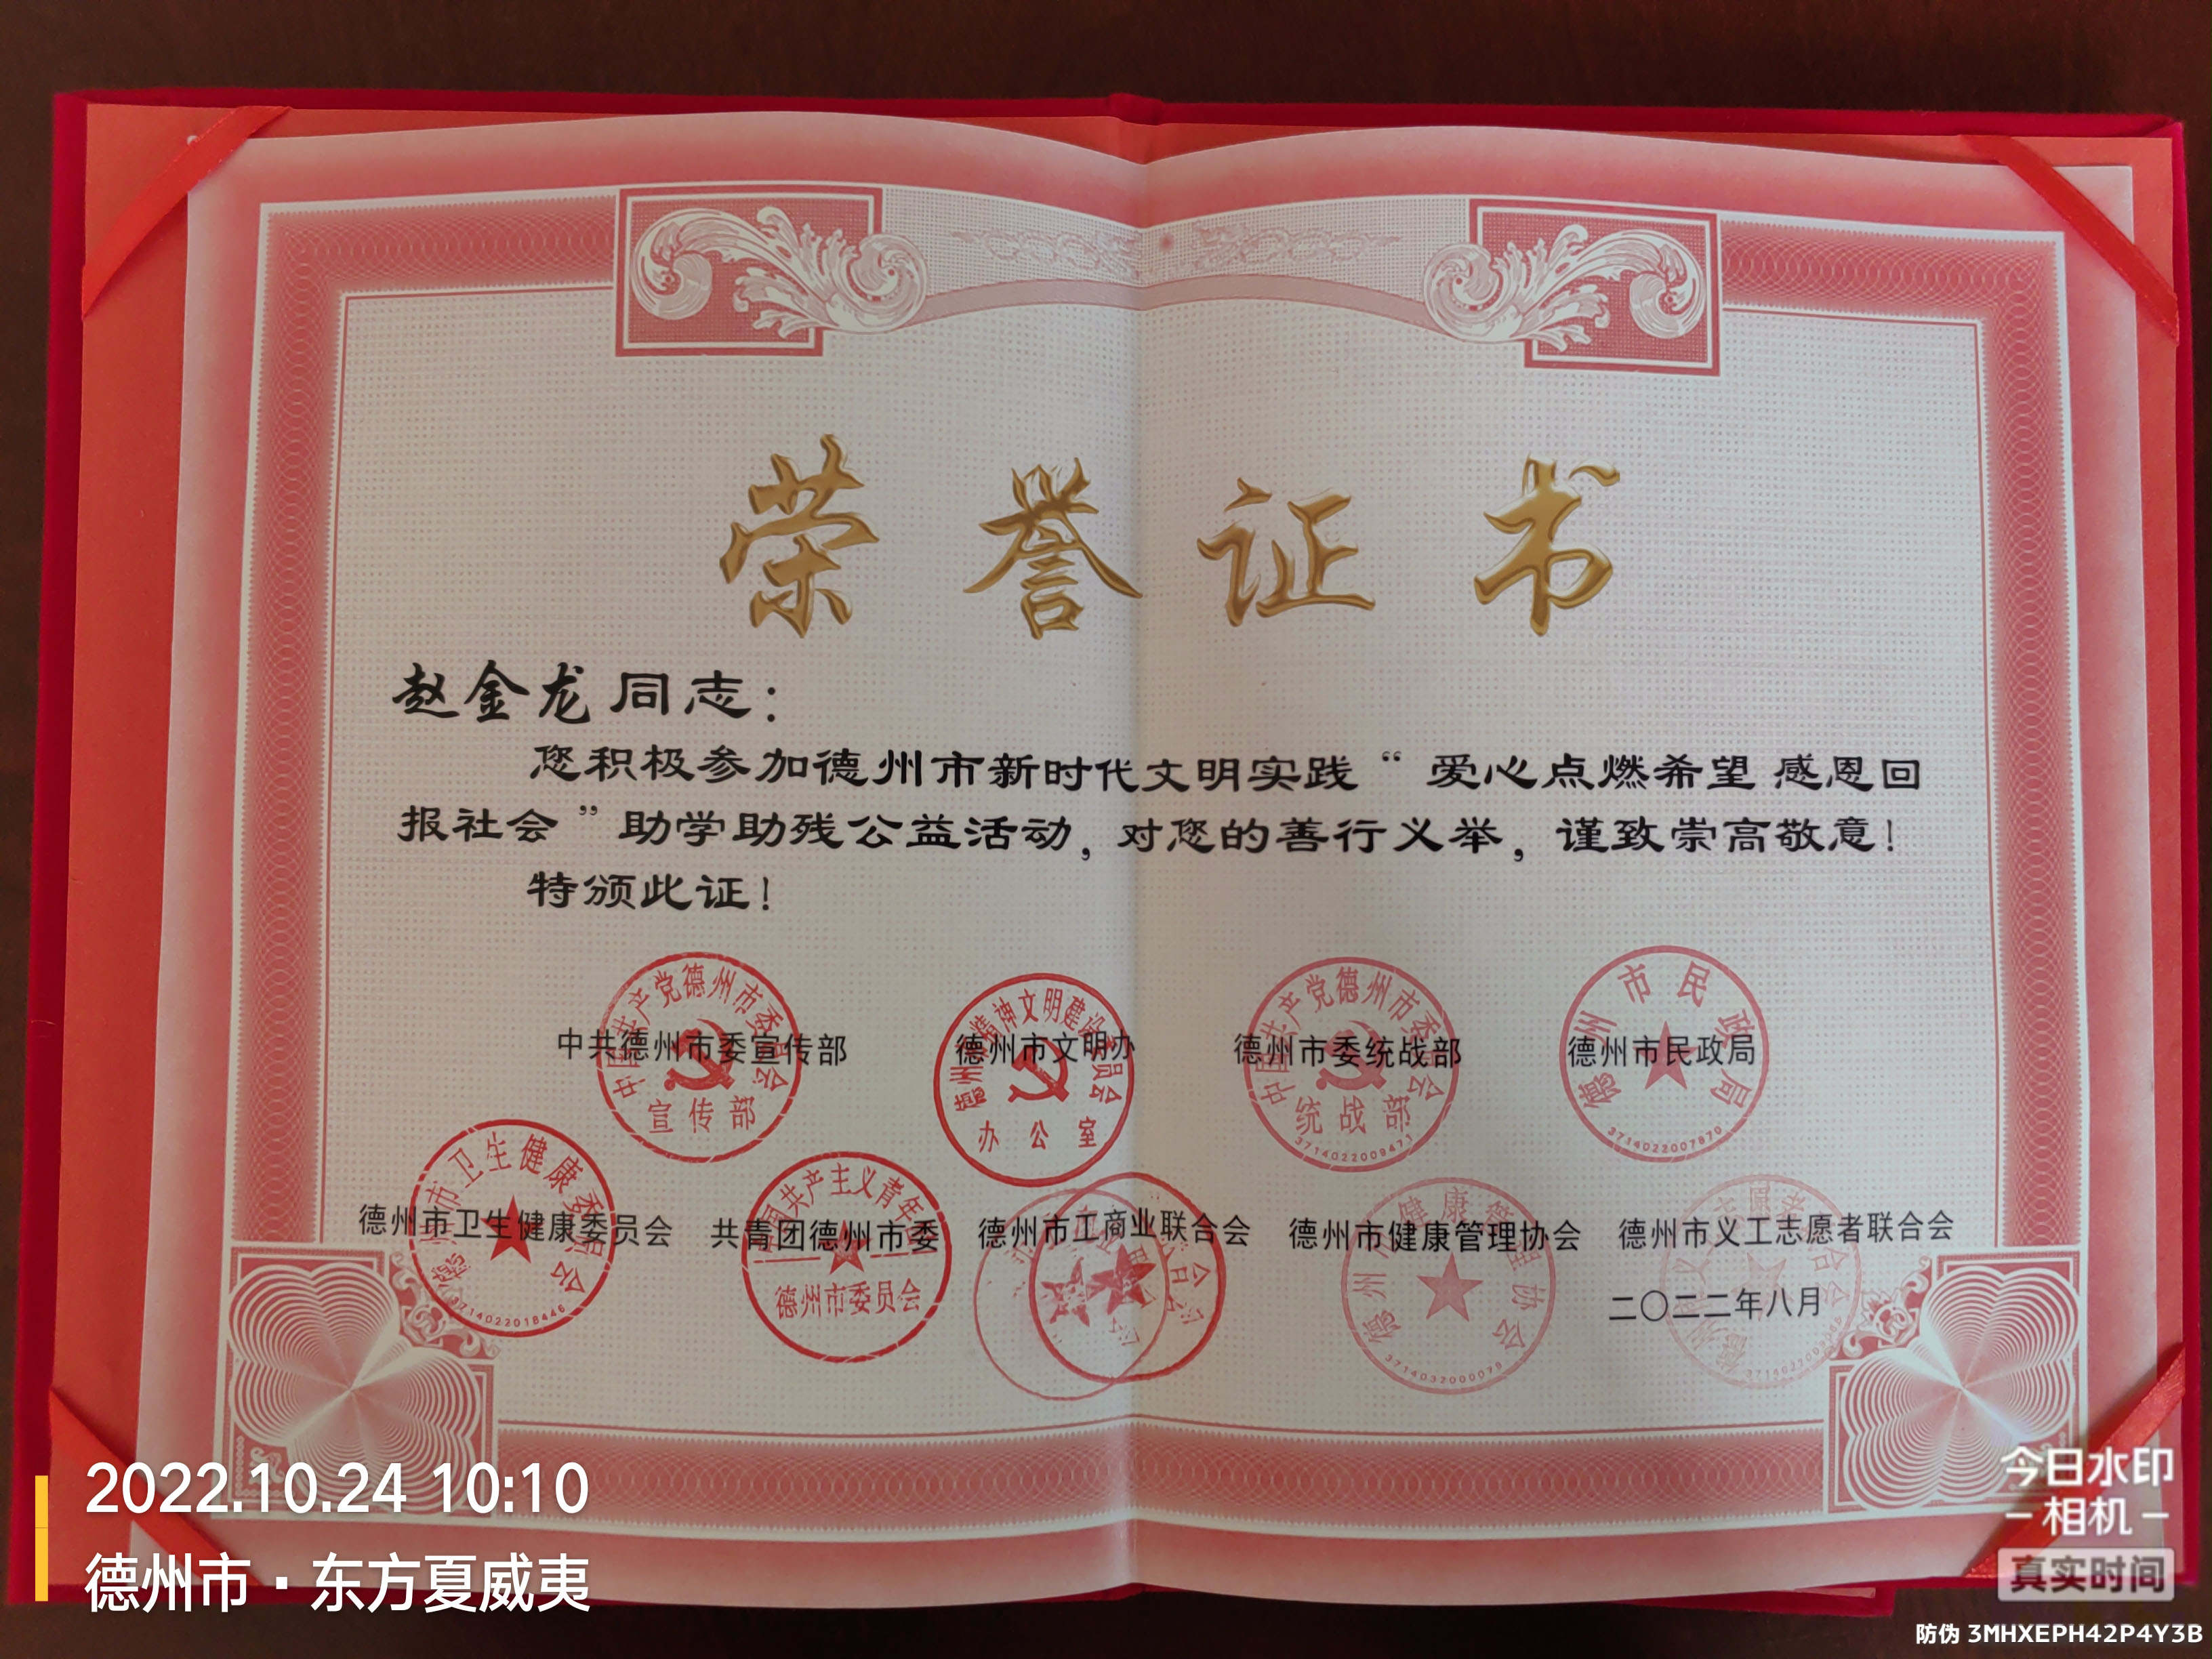 荣誉证书
赵金龙同志：
您积极参加德州市新时代文明实践“爱心点燃希望 感恩回
报社会”助学助残公益活动，对您的善行义举，谨致崇高敬意！
特颁此证！
中共德州市委宣传部 德州市文明办 德州市委统战部 德州市民政局
中国共产党德州市委员会
宣传部
德州市精神文明建设委员会
办公室
中国共产党德州市委员会
统战部
3714022009471
德州市民政局
3714022007870
德州市卫生健康委员会 共青团德州市委 德州市工商业联合会 德州市健康管理协会 德州市义工志愿者联合会
德州市卫生健康委员会
3714022018446
中国共产主义青年团
德州市委员会
德州市健康管理协会
3714032000079
二〇二二年八月
2022.10.24 10:10
德州市·东方夏威夷
今日水印
相机
真实时间
防伪 3MHXEPH42P4Y3B